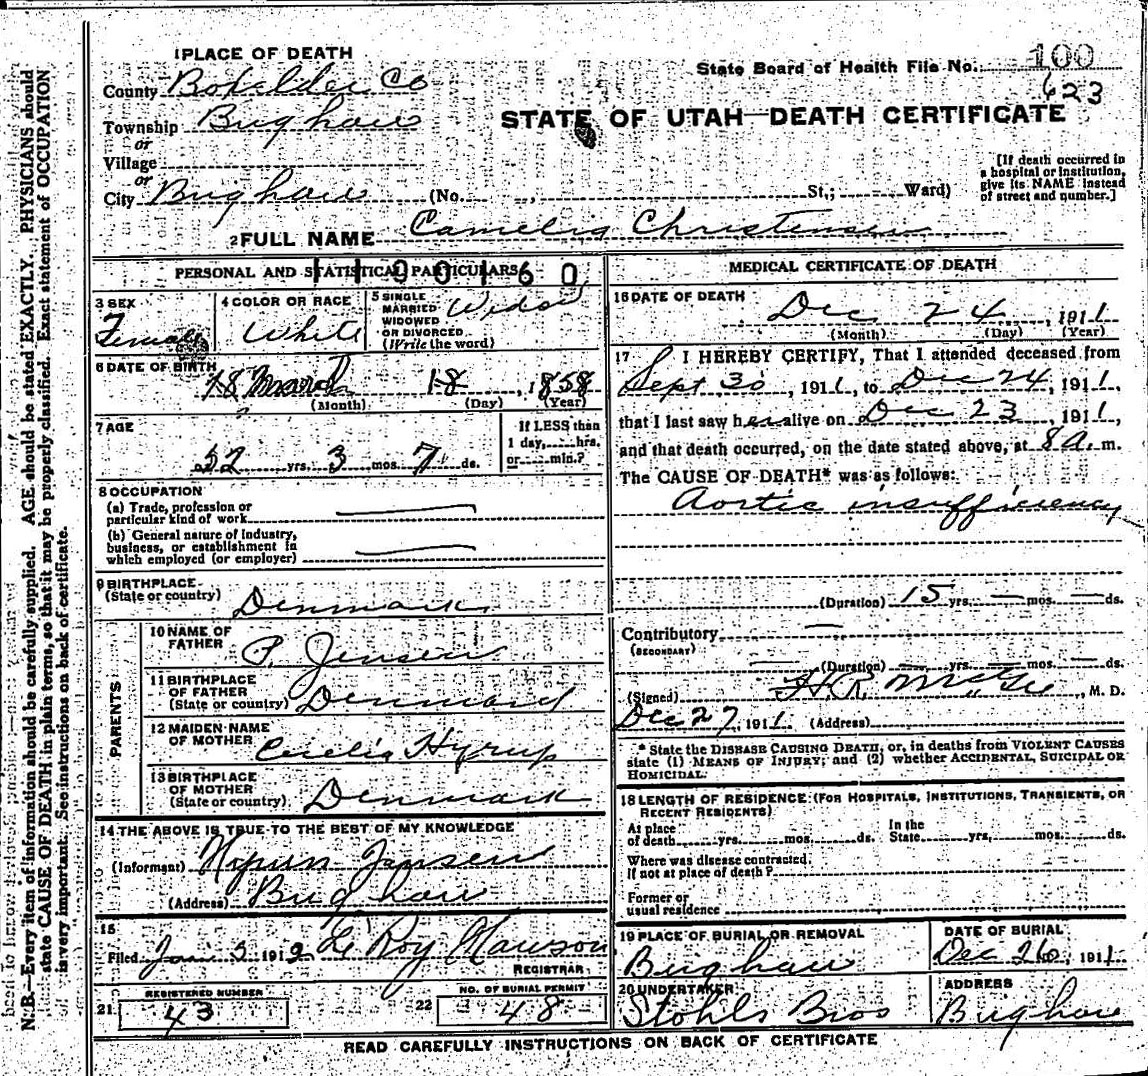 1 PLACE OF DEATH
County Boxelder Co
Township Brigham
or
Village
or
City Brigham (No. , St.; Ward)
State Board of Health File No. 100
623
STATE OF UTAH—DEATH CERTIFICATE
[If death occurred in
a hospital or institution,
give its NAME instead
of street and number.]
2 FULL NAME Camelia Christensen
PERSONAL AND STATISTICAL PARTICULARS
1100160
3 SEX
Female
4 COLOR OR RACE
White
5 SINGLE
MARRIED
WIDOWED
OR DIVORCED
(Write the word)
Widow
6 DATE OF BIRTH
18 March 18, 1858
(Month) (Day) (Year)
7 AGE
52 yrs. 3 mos. 7 ds.
If LESS than
1 day, hrs.
or min.?
8 OCCUPATION
(a) Trade, profession or
particular kind of work
(b) General nature of industry,
business, or establishment in
which employed (or employer)
9 BIRTHPLACE
(State or country) Denmark
PARENTS
10 NAME OF
FATHER P. Jensen
11 BIRTHPLACE
OF FATHER
(State or country) Denmark
12 MAIDEN NAME
OF MOTHER Cecelia Hyrup
13 BIRTHPLACE
OF MOTHER
(State or country) Denmark
14 THE ABOVE IS TRUE TO THE BEST OF MY KNOWLEDGE
(Informant) Jensen
(Address) Brigham
15
Filed Jan 3 1912 Le Roy
REGISTRAR
21 REGISTERED NUMBER
43
22 NO. OF BURIAL PERMIT
48
MEDICAL CERTIFICATE OF DEATH
16 DATE OF DEATH
Dec 24, 1911
(Month) (Day) (Year)
17 I HEREBY CERTIFY, That I attended deceased from
Sept 30, 1911, to Dec 24, 1911,
that I last saw her alive on Dec 23, 1911,
and that death occurred, on the date stated above, at 8 a. m.
The CAUSE OF DEATH* was as follows:
Aortic insufficiency
(Duration) 15 yrs. — mos. — ds.
Contributory —
(SECONDARY)
(Duration) — yrs. — mos. — ds.
(Signed) H R McGee, M. D.
Dec 27, 1911 (Address)
* State the DISEASE CAUSING DEATH, or, in deaths from VIOLENT CAUSES
state (1) MEANS OF INJURY; and (2) whether ACCIDENTAL, SUICIDAL OR
HOMICIDAL.
18 LENGTH OF RESIDENCE (FOR HOSPITALS, INSTITUTIONS, TRANSIENTS, OR
RECENT RESIDENTS)
At place
of death yrs. mos. ds.
In the
State yrs. mos. ds.
Where was disease contracted,
if not at place of death?
Former or
usual residence
19 PLACE OF BURIAL OR REMOVAL
Brigham
DATE OF BURIAL
Dec 26, 1911
20 UNDERTAKER
Stohls Bros
ADDRESS
Brigham
READ CAREFULLY INSTRUCTIONS ON BACK OF CERTIFICATE
N. B.—Every item of information should be carefully supplied. AGE should be stated EXACTLY. PHYSICIANS should
state CAUSE OF DEATH in plain terms, so that it may be properly classified. Exact statement of OCCUPATION
is very important. See instructions on back of certificate.